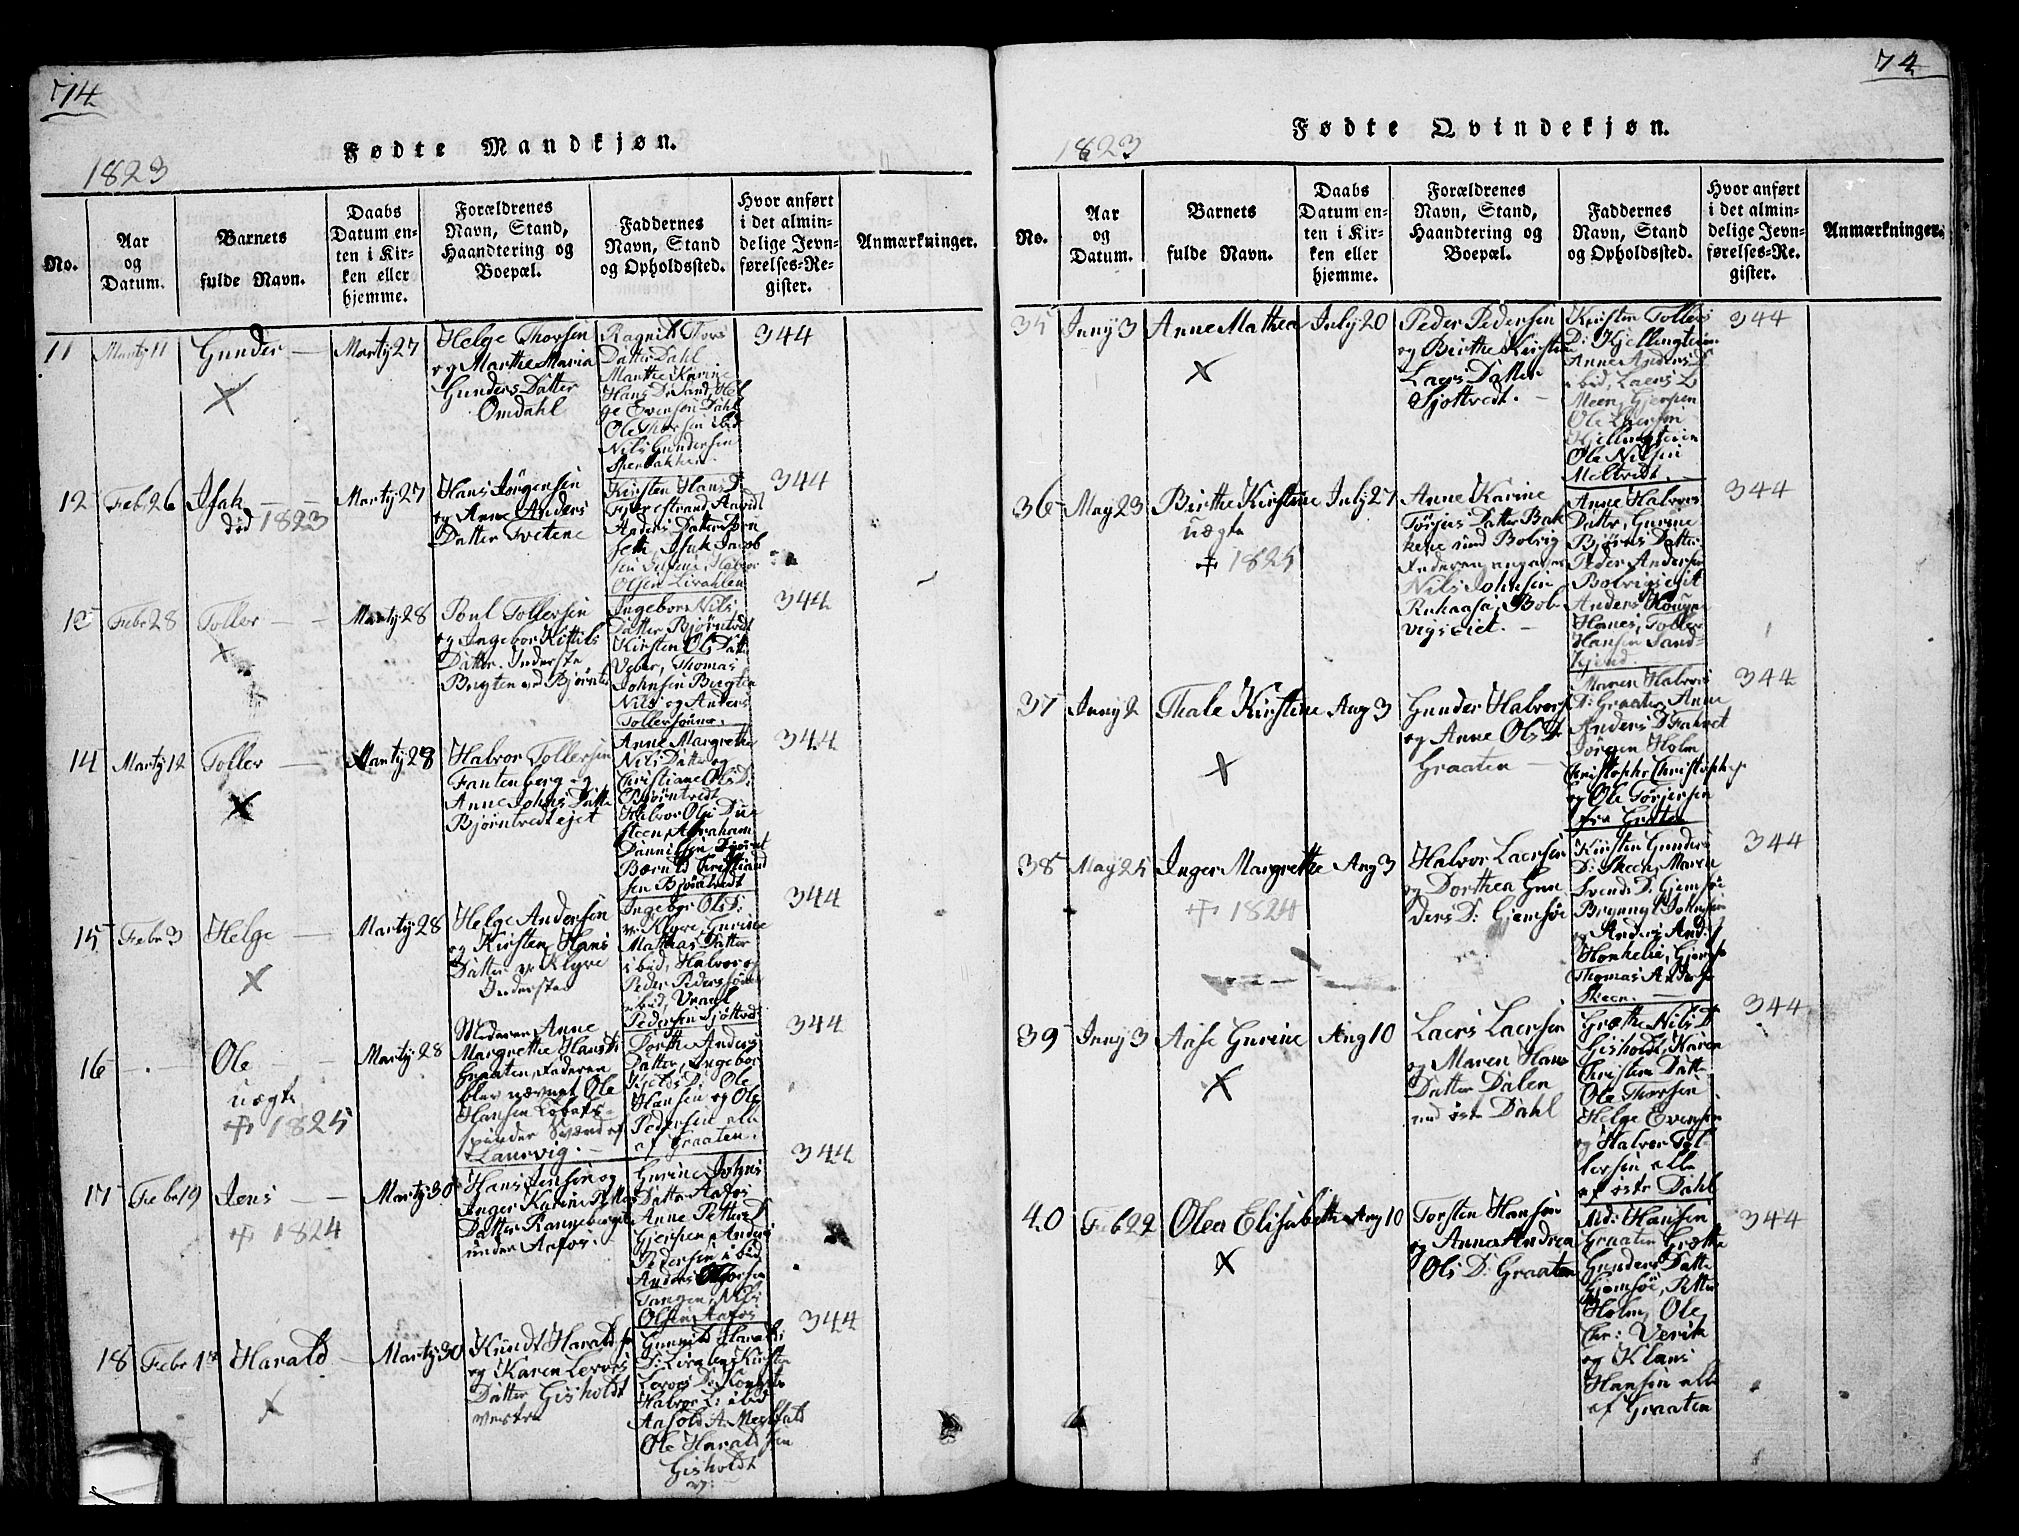 74
Fødte Mandkjøn.
1823
No.
Aar
og
Datum.
Barnets
fulde Navn.
Daabs
Datum en-
ten i Kir-
ken eller
hjemme.
Forældrenes
Navn, Stand,
Haandtering og
Boepæl.
Faddernes
Navn, Stand
og Opholdssted.
Hvor anført
i det almin-
delige Jevn-
førelses-Re-
gister.
Anmærkninger.
11 Martÿ 11 Gunder Martÿ 27
Helge Thorsen
og Marthe Maria
Gunders Datter
Omdahl
Ragnild Thors
Datter Dahl
Marthe Karine
Hans D: Sand, Hel
ge Evensøn Dahl
Ole Thorsen ibid
Nils Gundersen
344
12 Feb 26 Isak
død 1823
Martÿ 27
Hans Jørgensen
og Anne Anders
Datter Tvetene
Kirsten Hans D:
Anders Datter
Isak Jacob
sen Halvor
Olsen
344
13 Febr 28 Toller Martÿ 28
Poul Tollersen
og Ingebor Kittils
Datter. Inderste
Ingebor Nils
Datter Bjørntvedt
Kirsten Ols Dat
Thomas
Johnsen
Nils og Anders
Tollersønner.
344
14 Martÿ 12 Toller Martÿ 28
Halvor Tollersen
Fantenberg og
Anne Johns Datte
Bjørntvedtejet
Anne Margrethe
Nils Datter og
Christiane Ols D:
Bjørntvedt
Halvor Ols
Abraham
sen Bjørntvedt
344
15 Febr 3 Helge Martÿ 28
Helge Andersen
og Kirsten Hans
Datter v: Klyve
Inderster
Ingebor Ols D:
v: Klyve, Gurine
Mathias Datter
ibid, Halvor og
Peder Peders sønner
ibid,
Pedersen Sjøttvedt
344
16 Ole
uægte
1825
Martÿ 28
Moderen Anne
Margrethe Hans D:
Graaten, Faderen
blev nævnet Ole
Hansen
Laurvig.
Dorthe Anders
Datter, Ingebor
Kjelds D: Ole
Hansen og Ole
Pedersen alle
af Graaten.
344
17 Febr 19 Jens
1824
Martÿ 30
Hans Jensen og
Inger Karine Petters
Datter
under Aafos.
Gurine Johns
Datter Aafos
Anne Petters D
Gjerpen, Anders
Pedersen ibid
Anders
Tangen, Nils
Olsen Aafos
344
18 Febr 1ste Harald Martÿ 30
Knudt Haralds
og Karen Levors
Datter Gisholdt
vestre
Gunnild Haralds
Kirsten
Levors D:
Halvor L: ibid
Aasold A:
Ole Haraldsen
Gisholdt
v:
344
74
Fødte Qvindekjøn.
1823
No.
Aar
og
Datum.
Barnets
fulde Navn.
Daabs
Datum en-
ten i Kir-
ken eller
hjemme.
Forældrenes
Navn, Stand,
Haandtering og
Boepæl.
Faddernes
Navn, Stand
og Opholdssted.
Hvor anført
i det almin-
delige Jevn-
førelses-Re-
gister.
Anmærkninger.
35 Junÿ 3 Anne Mathea Julÿ 20
Peder Pedersen
og Birthe Kirstine
Laers Datter
Sjøttvedt.
Kirsten Tollers
D:
Anne Anders D:
ibid, Laers L:
Meen, Gjerpen
Ole Laersen
Ole Nilsen
344
36 May 23 Birthe Kirstine
uægte
1825
Julÿ 27
Anne Karine
Torjus Datter Bak
kene und Bolvig
Faderen angaves
Nils Johnsen
Bol
vigseiet.
Anne Halvors
Datter, Gurine
Bjørns Datter
Peder Andersen
Bolvigseiet
Anders
Hanes, Toller
Hansen Sand-
344
37 Junÿ 2 Thale Kirstine Aug 3
Gunder Halvors
og Anne Ols D
Graaten
Maren Halvors
D: Graaten Anne
Anders D:
Jørgen Holm
Christopher Christoph
og Ole Torjersen
fra Graaten
344
38 May 25 Inger Margrethe
1824
Aug 3
Halvor Laersen
og Dorthea Gun
ders D: Gjemsøe
Kirsten Gunders
D: Skeen, Maren
Svends D: Gjemsøe
Brynnyl Johnsen
og Anders And:
Thomas Anders
Skeen.
344
39 Junÿ 3 Aase Gurine Aug 10
Laers Laersen
og Maren Hans
Datter Dalen
und østr Dahl
Grethe Nils D
Gisholdt, Karen
Christens Datte
Ole Thorsen
Helge Evensen
og Halvor Tol
lersen alle
af østr Dahl
344
40 Feb 22 Olea Elisabeth Aug 10
Torsten Hansen
og Anne Andrea
Ols D: Graaten
Md: Hansen
Graaten Grethe
Gunders Datte
Gjemsøe, Petter
Holm, Ole
Chr: Verik
og Klaus
Hansen alle
af Graaten
344